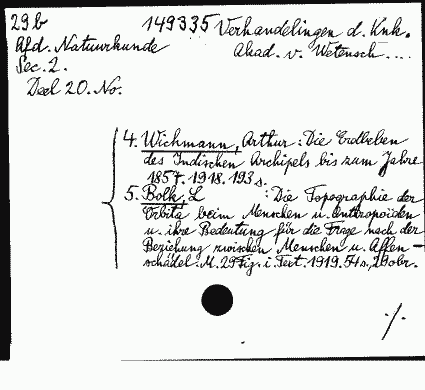 29b 149335 Verhandelingen d. Knk.
Afd. Natuurkunde Akad. v. Wetensch....
Sec. 2.
Deel 20. No.
4. Wichmann, Arthur: Die Erdbeben
des Indischen Archipels bis zum Jahre
1857. 1918. 193 s.
5. Bolk, L :Die Topographie der
Orbita beim Menschen u. Anthropoiden
u. ihre Bedeutung für die Frage nach der
Beziehung zwischen Menschen u. Affen-
schädel. M. 29 Fig. i. Text. 1919. 54 s.,
./.